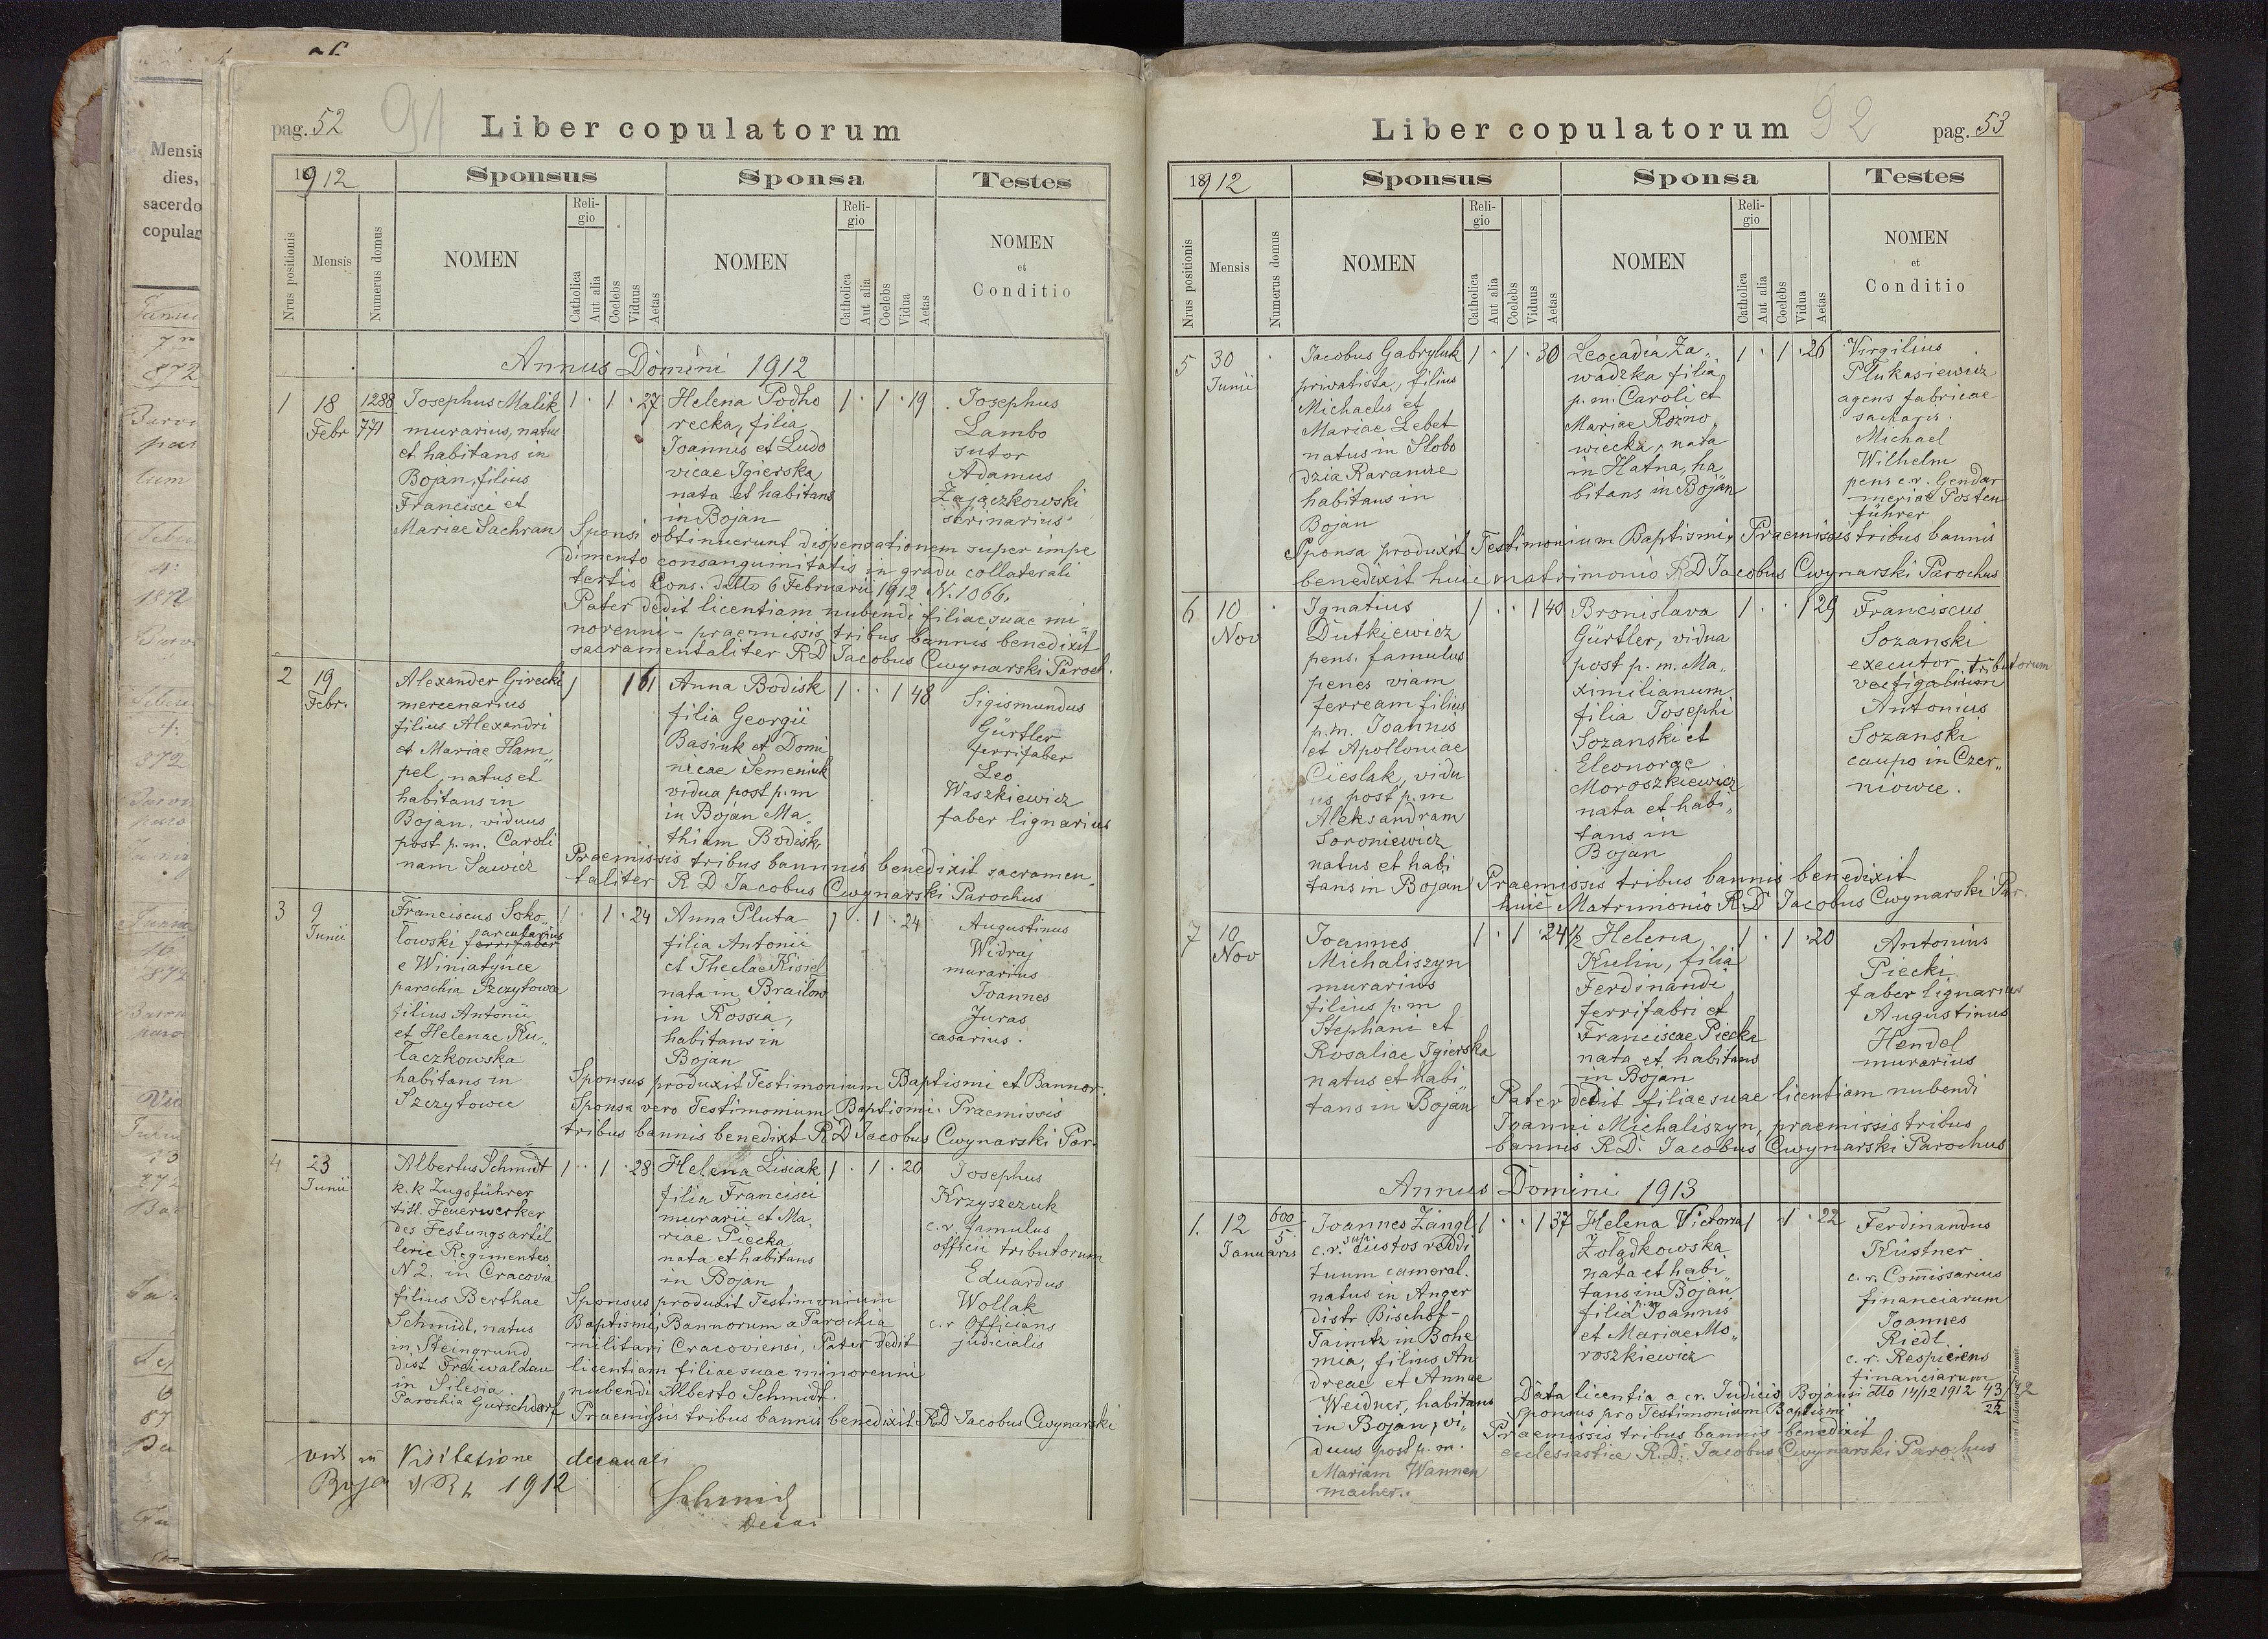 pag. 52
91
Liber copulatorum
1912
Sponsus
Sponsa
Testes
Nrus positionis
Mensis
Numerus domus
NOMEN
Religio
Catholica
Aut alia
Coelebs
Viduus
Aetas
NOMEN
Religio
Catholica
Aut alia
Coelebs
Vidua
Aetas
NOMEN
et
Conditio
Annus Domini 1912
1
18
Febr
1288
771
Josephus Malik
murarius, natus
et habitans in
Bojan, filius
Francisci et
Mariae Sachran
1 · 1 · 27
Helena Podho
recka, filia
Joannis et Ludo
vicae Igierska
nata et habitans
in Bojan
1 · 1 · 19
Josephus
Lambo
sutor
Adamus
Zajączkowski
scrinarius
Sponsi obtinuerunt dispensationem super impe
dimento consanguinitatis in gradu collaterali
tertio Cons. datto 6 Februarii 1912 N. 1066.
Pater dedit licentiam nubendi filiae suae mi
norenni - praemissis tribus bannis benedixit
sacramentaliter RD Jacobus Cwynarski Paroch.
2
19
Febr.
Alexander Girecki
mercenarius
filius Alexandri
et Mariae Ham
pel, natus et
habitans in
Bojan, viduus
post p. m. Caroli
nam Sawicz
1 1 61
Anna Bodisk
filia Georgii
Basiuk et Domi
nicae Semeniuk
vidua post p. m
in Bojan Ma„
thiam Bodisk
1 · · 1 48
Sigismundus
Gürtler
ferrifaber
Leo
Waszkiewicz
faber lignarius
Praemissis tribus bannis benedixit sacramen„
taliter R D Jacobus Cwynarski Parochus
3
9
Junii
Franciscus Soko„
arcularius
łowski ferrifaber
e Winiatynce
parochia Szczytowce
filius Antonii
et Helenae Ku„
łaczkowska
habitans in
Szczytowce
1 · 1 · 24
Anna Pluta
filia Antonii
et Theclae Kisiel
nata in Braiłow
in Rossia,
habitans in
Bojan
1 · 1 · 24
Augustinus
Widraj
murarius
Joannes
Juras
casarius.
Sponsus produxit Testimonium Baptismi et Bannor.
Sponsa vero Testimonium Baptismi. Praemissis
tribus bannis benedixt R D Jacobus Cwynarski Par.
4
23
Junii
Albertus Schmidt
k. k Zugsführer
titl. Feuerwerker
des Festungsartil
lerie Regimentes
N 2. in Cracovia
filius Berthae
Schmidt, natus
in Steingrund
dist Freiwaldau
in Silesia
Parochia Gurschdorf
1 · 1 · 28
Helena Lisiak
filia Francisci
murarii et Ma„
riae Piecka
nata et habitans
in Bojan
1 · 1 · 20
Josephus
Krzyszczuk
c. r famulus
officii tributorum
Eduardus
Wollak
c. r Officians
judicialis
Sponsus produxit Testimonium
Baptismi, Bannorum a Parochia
militari Cracoviensi, Pater dedit
licentiam filiae suae minorenni
nubendi Alberto Schmidt.
Praemissis tribus bannis benedixit RD Jacobus Cwynarski
Visitatione decanali
1912
92
Liber copulatorum
pag. 53
18912
Sponsus
Sponsa
Testes
Nrus positionis
Mensis
Numerus domus
NOMEN
Religio
Catholica
Aut alia
Coelebs
Viduus
Aetas
NOMEN
Religio
Catholica
Aut alia
Coelebs
Vidua
Aetas
NOMEN
et
Conditio
5
30
Junii
Jacobus Gabryluk
privatista, filius
Michaelis et
Mariae Lebet
natus in Slobo
dzia Rarancze
habitans in
Bojan
1 · 1 · 30
Leocadia Za„
wadzka filia
p. m. Caroli et
Mariae Rozno„
wiecka, nata
in Hatna, ha„
bitans in Bojan
1 · 1 · 26
Virgilius
Płukasiewicz
agens fabricae
sacharis.
Michael
Wilhelm
pens c. r. Gendar
meriae Posten
führer
Sponsa produxit Testimonium Baptismi, Praemissis tribus bannis
benedixit huic matrimonio R D Jacobus Cwynarski Parochus
6
10
Nov
Ignatius
Dutkiewicz
pens. famulus
penes viam
ferream filius
p. m. Joannis
et Apolloniae
Cieslak, vidu
us post p. m
Aleksandram
Soroniewicz
natus et habi
tans in Bojan
1 · · 1 40
Bronislava
Gürtler, vidua
post p. m. Ma„
ximilianum
filia Josephi
Sozanski et
Eleonorae
Moroszkiewicz
nata et habi„
tans in
Bojan
1 · · 1 29
Franciscus
Sozanski
executor tributorum
vectigalium
Antonius
Sozanski
caupo in Czer„
niowce.
Praemissis tribus bannis benedixit
huic Matrimonio R. D Jacobus Cwynarski Par.
7
10
Nov
Joannes
Michaliszyn
murarius
filius p. m
Stephani et
Rosaliae Igierska
natus et habi„
tans in Bojan
1 · 1 · 24 ½
Helena
Kulin, filia
Ferdinandi
ferrifabri et
Franciscae Piecka
nata et habitans
in Bojan
1 · 1 · 20
Antonius
Piecki
faber lignarius
Augustinus
Hendel
murarius
Pater dedit filiae suae licentiam nubendi
Joanni Michaliszyn, praemissis tribus
bannis R. D. Jacobus Cwynarski Parochus
Annus Domini 1913
1.
12
Januaris
600
5
Joannes Zängl
c. r. sup. custos reddi
tuum cameral.
natus in Anger
distr Bischof-
Tainitz in Bohe
mia, filius An
dreae et Annae
Weidner, habitans
in Bojan, vi„
duus post p. m.
Mariam Wannen
macher.
1 · · 1 37
Helena Victoria
Zołądkowska
nata et habi„
tans in Bojan
filia p. m. Joannis
et Mariae Mo„
roszkiewicz
1 · 1 · 22
Ferdinandus
Küstner
c. r. Comissarius
financiarum
Joannes
Riedl
c. r. Respiciens
financiarum
Data licentia a c. r. Judicis Bojansi dtto 14/12 1912 43/12
22
Sponsus pro Testimonium Baptismi
Praemissis tribus bannis benedixit
ecclesiastice R. D. Jacobus Cwynarski Parochus